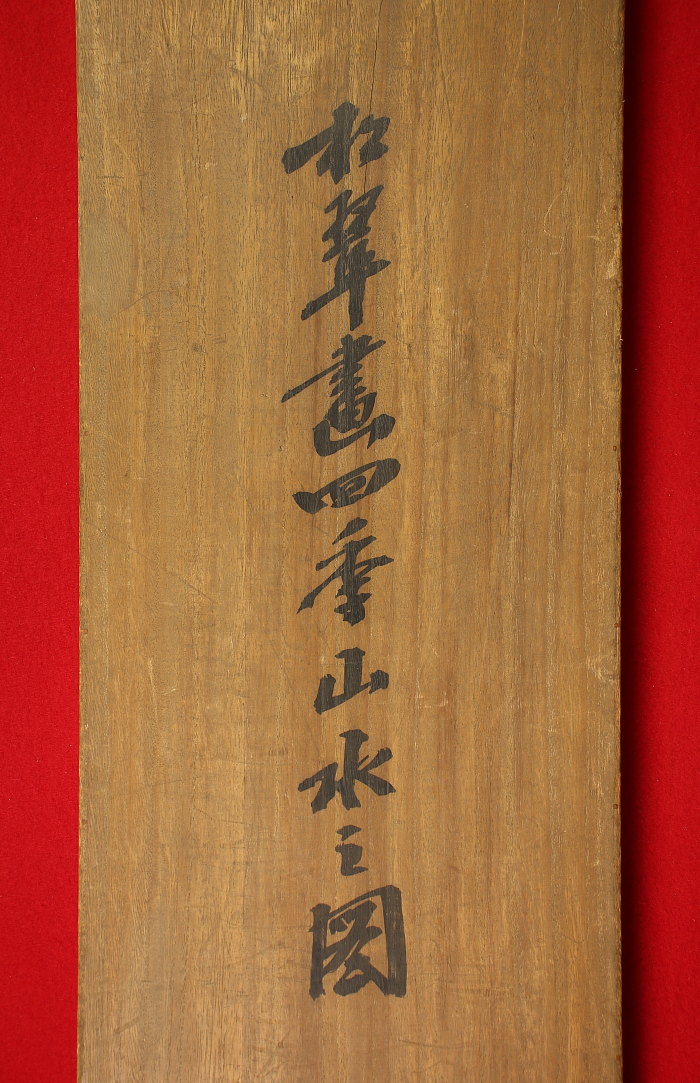 松翠畫四季山水之圖